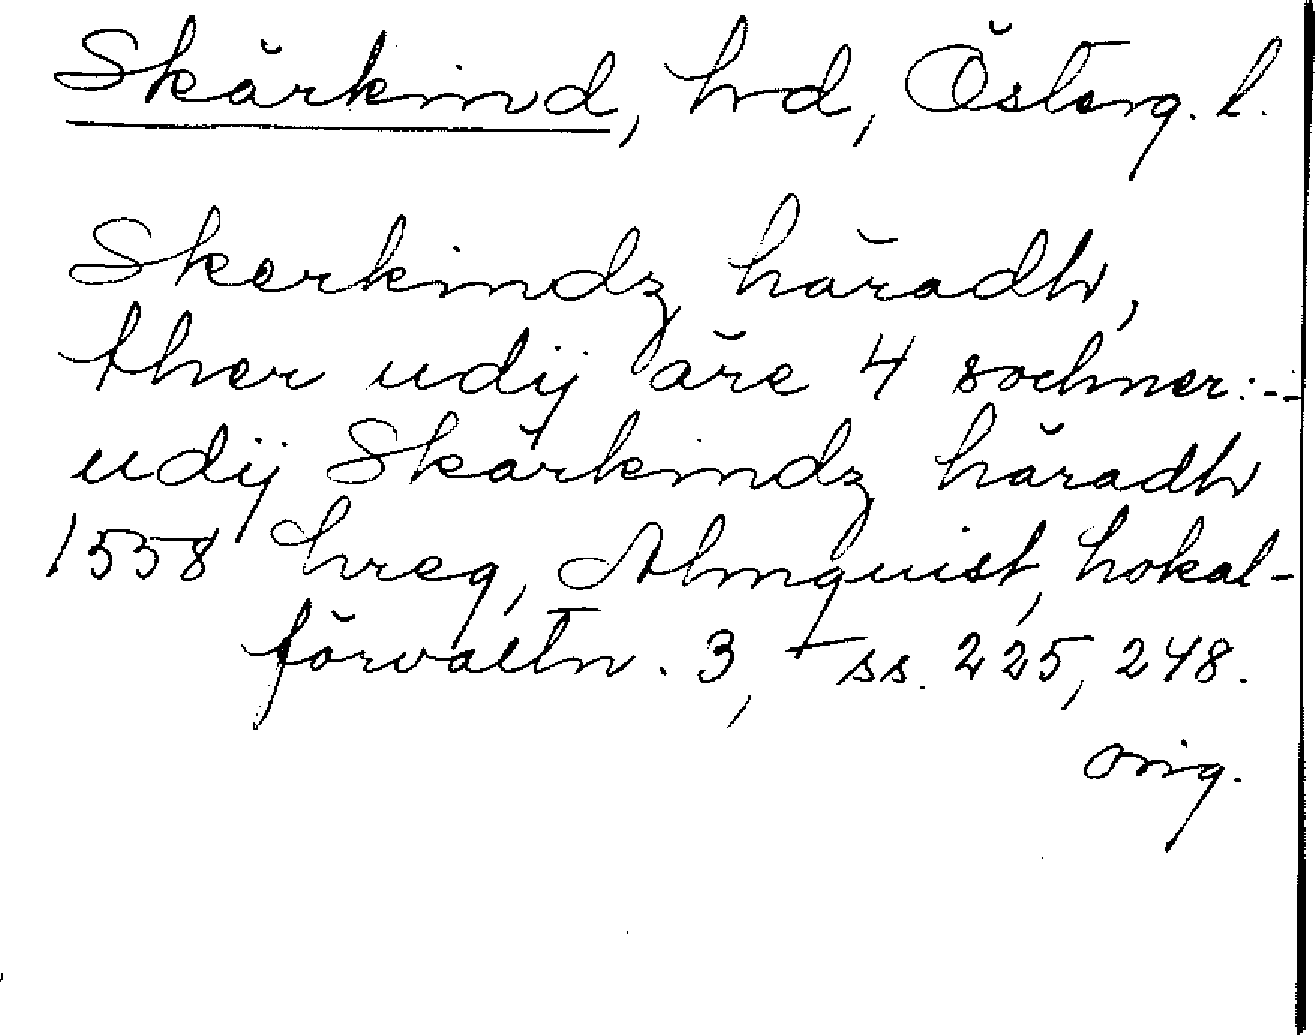 Skärkind, hrd, Österg. l.
Skerkindz häradh,
ther udij äre 4 sochner:--
udij Skärkindz häradh
1558 hreg, Almquist, Lokal-
förvaltn. 3, ss. 225, 248.
orig.